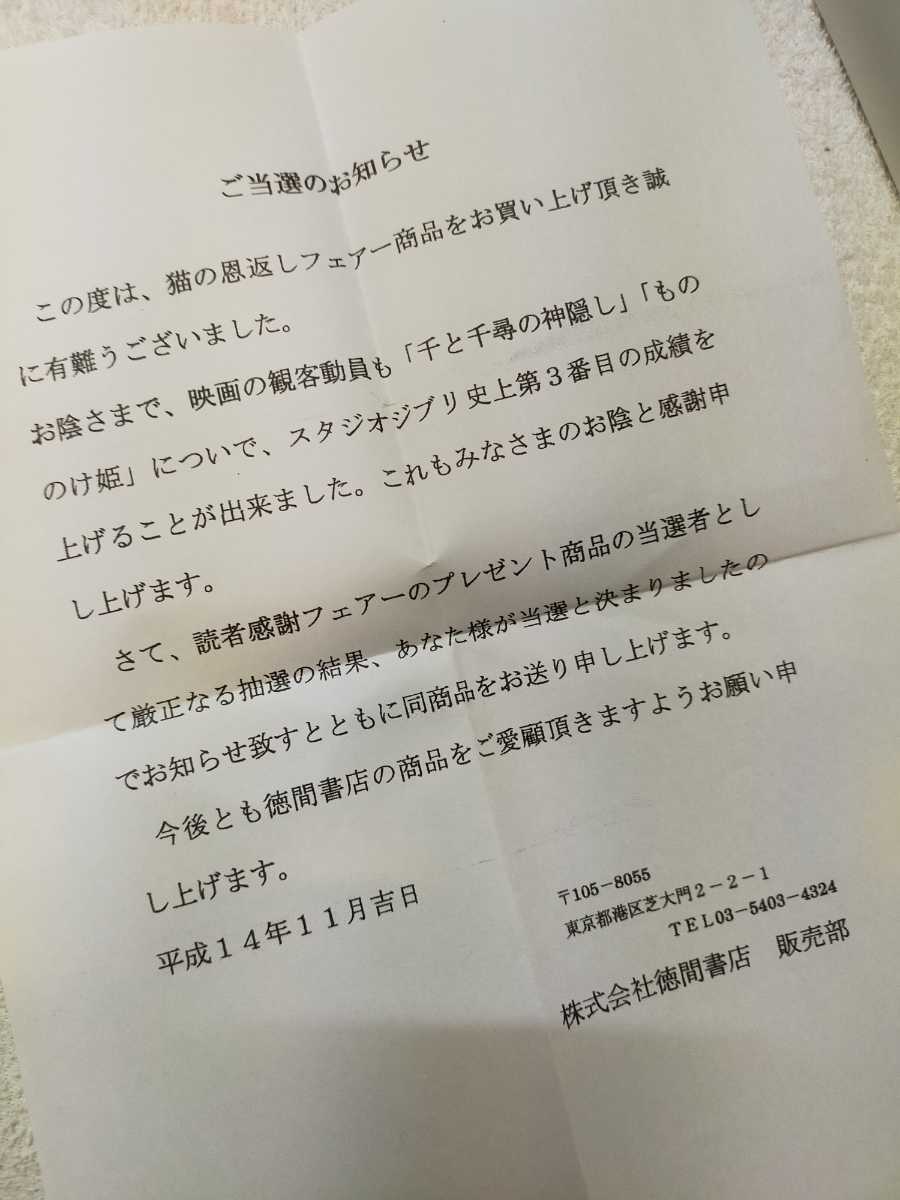 ご当選のお知らせ
この度は、猫の恩返しフェアー商品をお買い上げ頂き誠
に有難うございました。
お陰さまで、映画の観客動員も「千と千尋の神隠し」「もの
のけ姫」についで、スタジオジブリ史上第３番目の成績を
上げることが出来ました。これもみなさまのお陰と感謝申
し上げます。
さて、読者感謝フェアーのプレゼント商品の当選者とし
て厳正なる抽選の結果、あなた様が当選と決まりましたの
でお知らせ致すとともに同商品をお送り申し上げます。
今後とも徳間書店の商品をご愛顧頂きますようお願い申
し上げます。
平成１４年１１月吉日
〒105−8055
東京都港区芝大門２−２−１
ＴＥＬ03−5403−4324
株式会社徳間書店　販売部